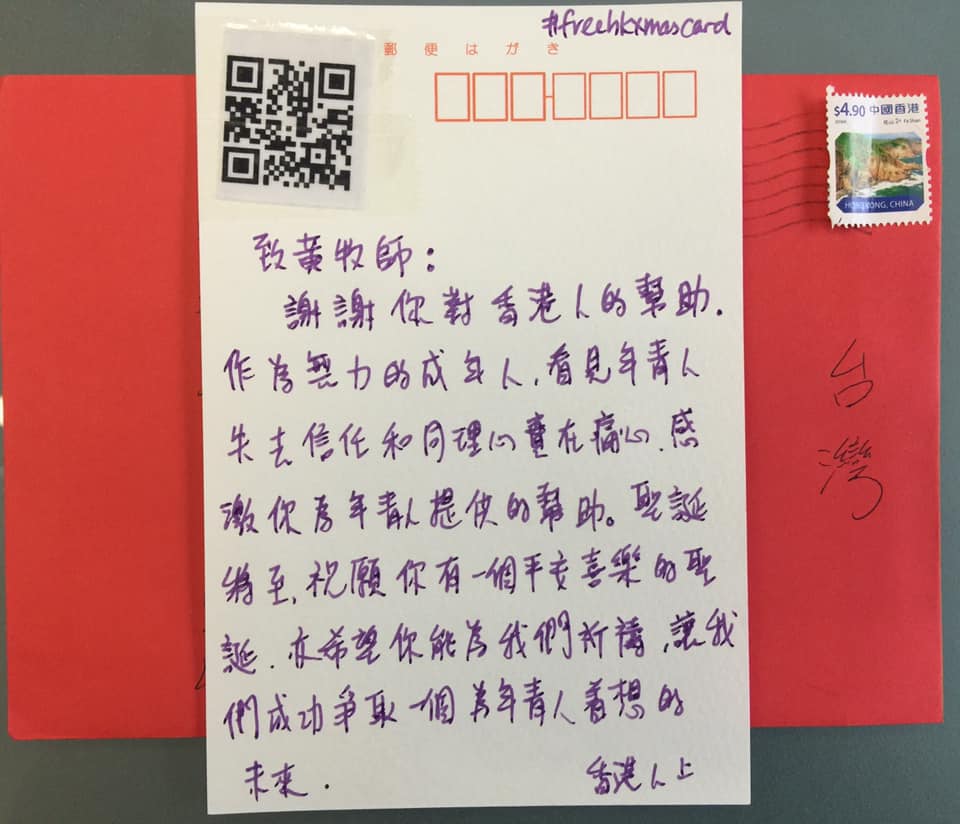 #freehkxmascard
郵便はがき
致黃牧師：
謝謝你對香港人的幫助.
作為無力的成年人,看見年青人
失去信任和同理心實在痛心.感
激你為年青人提供的幫助。聖誕
將至,祝願你有一個平安喜樂的聖
誕.亦希望你能為我們祈禱,讓我
們成功爭取一個為年青人着想的
未來.
香港人上
$4.90 中國香港
HONG KONG, CHINA
台灣